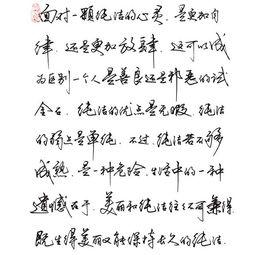 面对一颗纯洁的心灵，是更加自
律，还是更加放肆，这可以成
为区别一个人是善良还是邪恶的试
金石，纯洁的优点是无暇，纯洁
的弱点是单纯，不过，纯洁若不够
成熟，是一种危险，生活中的一种
遗憾在于，美丽和纯洁往往不可兼得，
既生得美丽又能保持长久的纯洁，